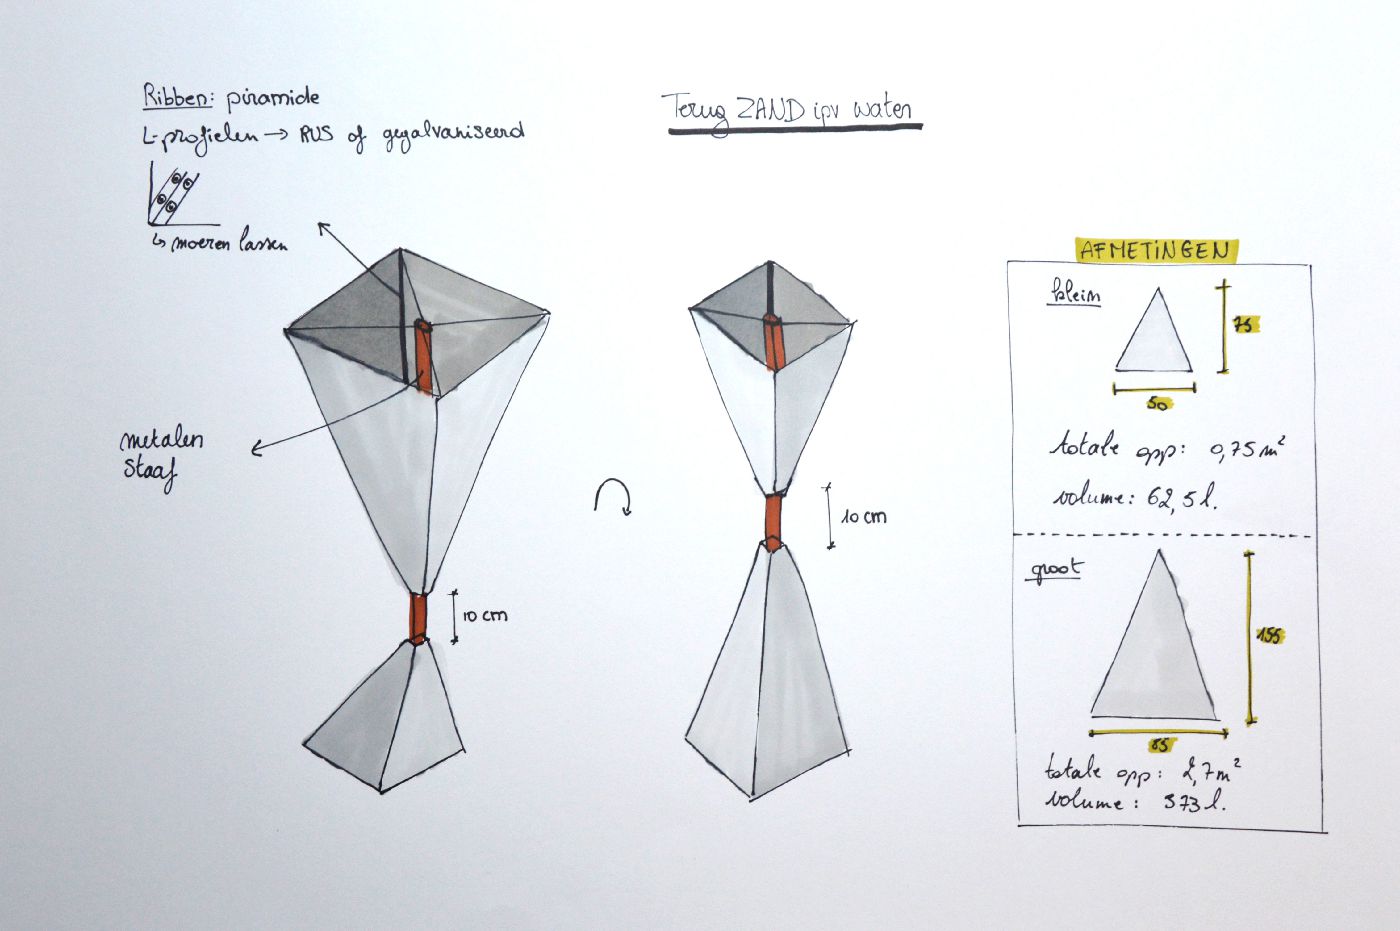 Ribben: piramide
L-profielen → RVS of gegalvaniseerd
↳ moeren lassen
metalen
staaf
10 cm
Terug ZAND ipv water
10 cm
AFMETINGEN
klein
75
50
totale opp: 0,75 m²
volume: 62,5 l.
groot
155
85
totale opp: 2,7 m²
volume: 373 l.